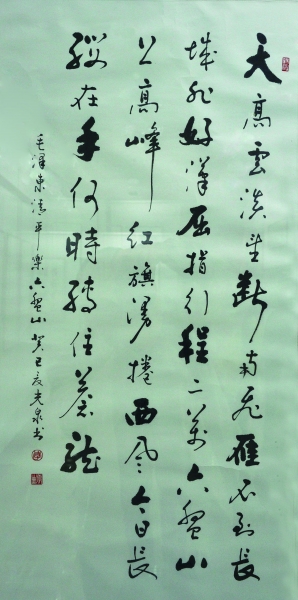 天高雲淡望斷南飛雁不到長
城非好漢屈指行程二萬六盤山
上高峰紅旗漫捲西風今日長
纓在手何時縛住蒼龍
毛澤東清平樂六盤山癸巳夏光泉书